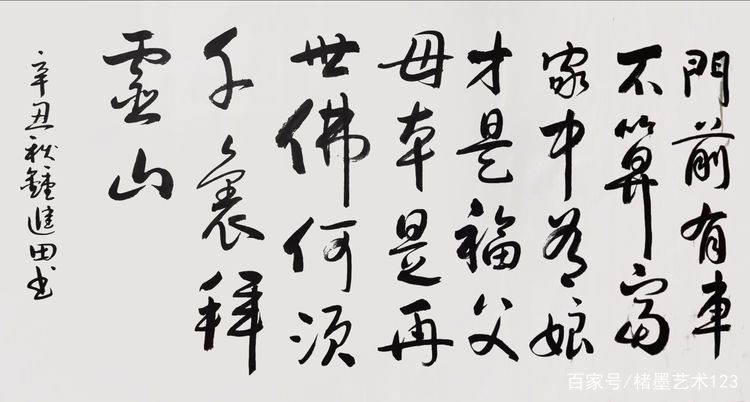 門前有車
不算富
家中有娘
才是福父
母本是再
世佛何須
千裏拜
靈山
辛丑秋鍾進田书
百家号/楮墨艺术123